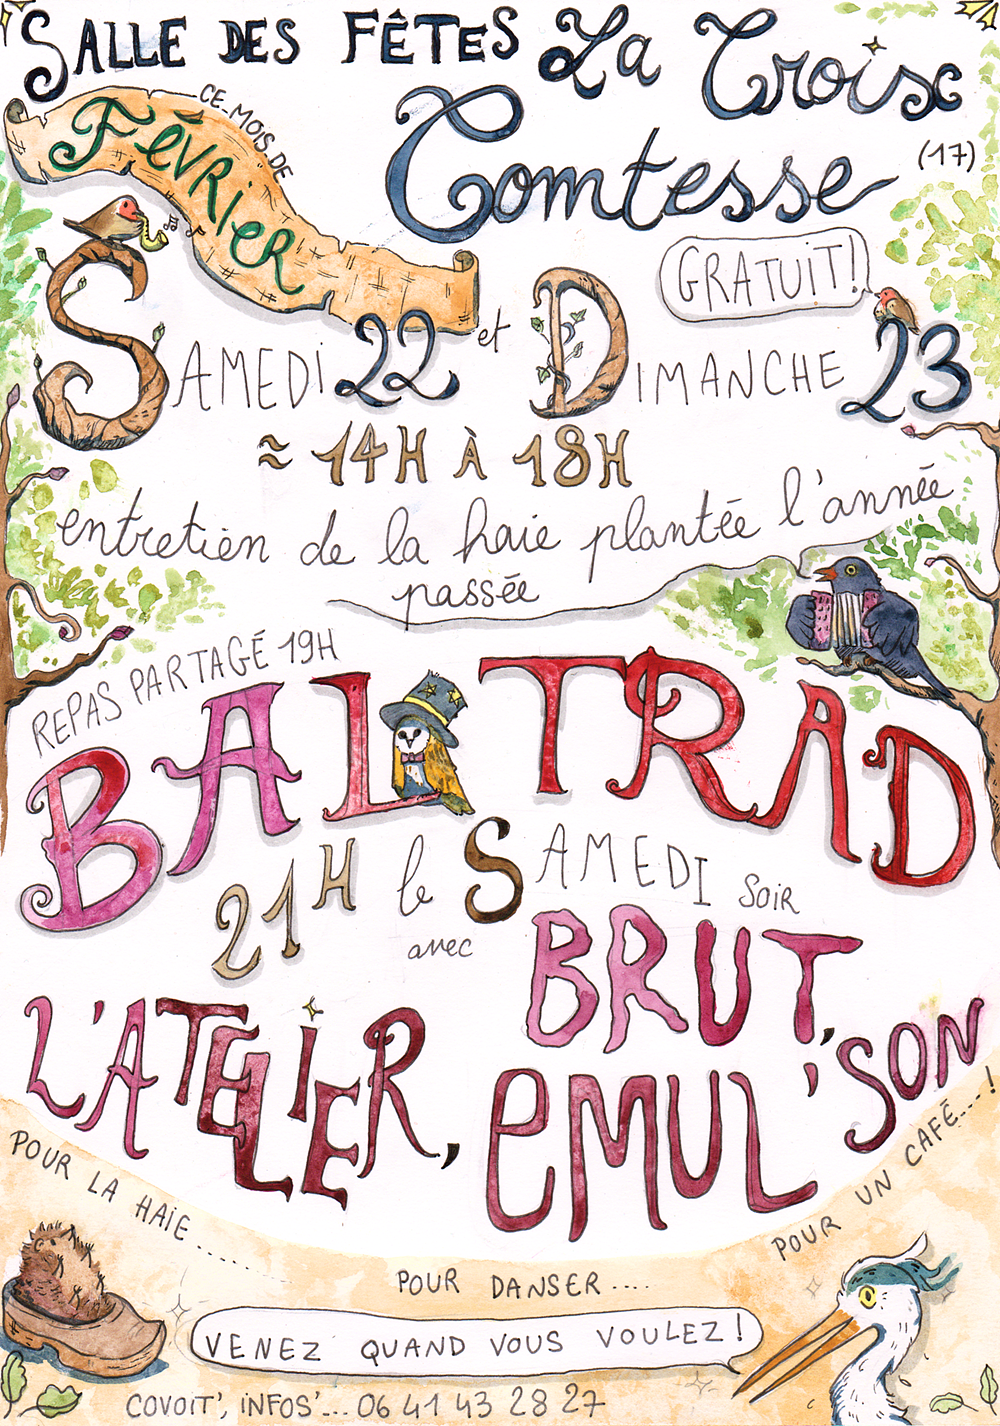 SALLE DES FÊTES La Croix
Comtesse
(17)
CE MOIS DE
FévRier
GRATUIT!
SAMEDI 22 et DIMANCHE 23
≈ 14H À 18H
entretien de la haie plantée l'année
passée
REPAS PARTAGÉ 19H
BAL TRAD
21H le SAMEDI SOIR
avec BRUT,
L'ATELIER, eMUL'SON
POUR LA HAIE.......
POUR DANSER....
POUR UN CAFÉ...!
VENEZ QUAND VOUS VOULEZ!
COVOIT', INFOS'... 06 41 43 28 27